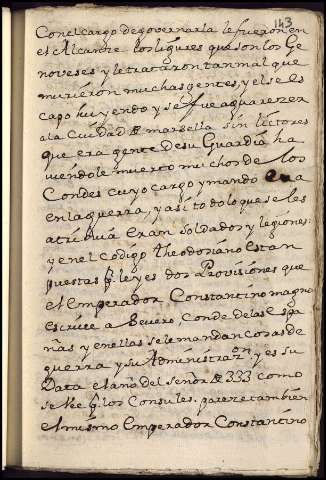 143
Con el cargo de governarla le fueron en
el Alcanze los ligures que son los Ge
noveses y le trataron tan mal que
murieron muchas gentes, y el se es
capo huyendo y se fue a guarezer
a la Ciudad de marsella sin lictores
que era gente de su Guardia ha
viendole muerto muchos de los
Condes cuyo cargo y mando era
en la guerra, y asi todo lo que se les
atribuia eran soldados y legiones:
y en el Codigo Theodosiano estan
puestas leyes dos Provisiones que
el Emperador Constantino magno
escrive a Severo, Conde de las Espa
ñas y en ellas se le mandan cosas de
guerra y su Administraz.on y es su
Data el año del señor de 333 como
se lee los Consules. pareze tambien
el mismo Emperador Constantino